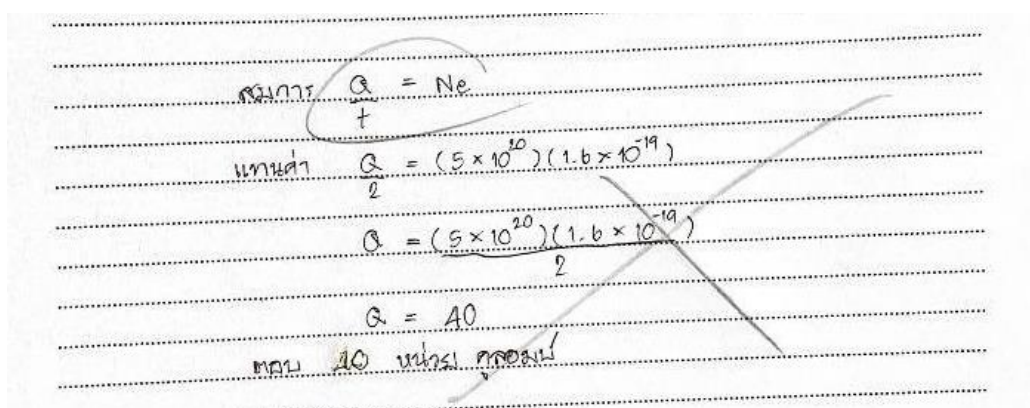 สมการ Q/t = Ne
แทนค่า Q/2 = (5 × 10²⁰)(1.6 × 10⁻¹⁹)
Q = (5 × 10²⁰)(1.6 × 10⁻¹⁹)/2
Q = 40
ตอบ 40 หน่วย คูลอมบ์